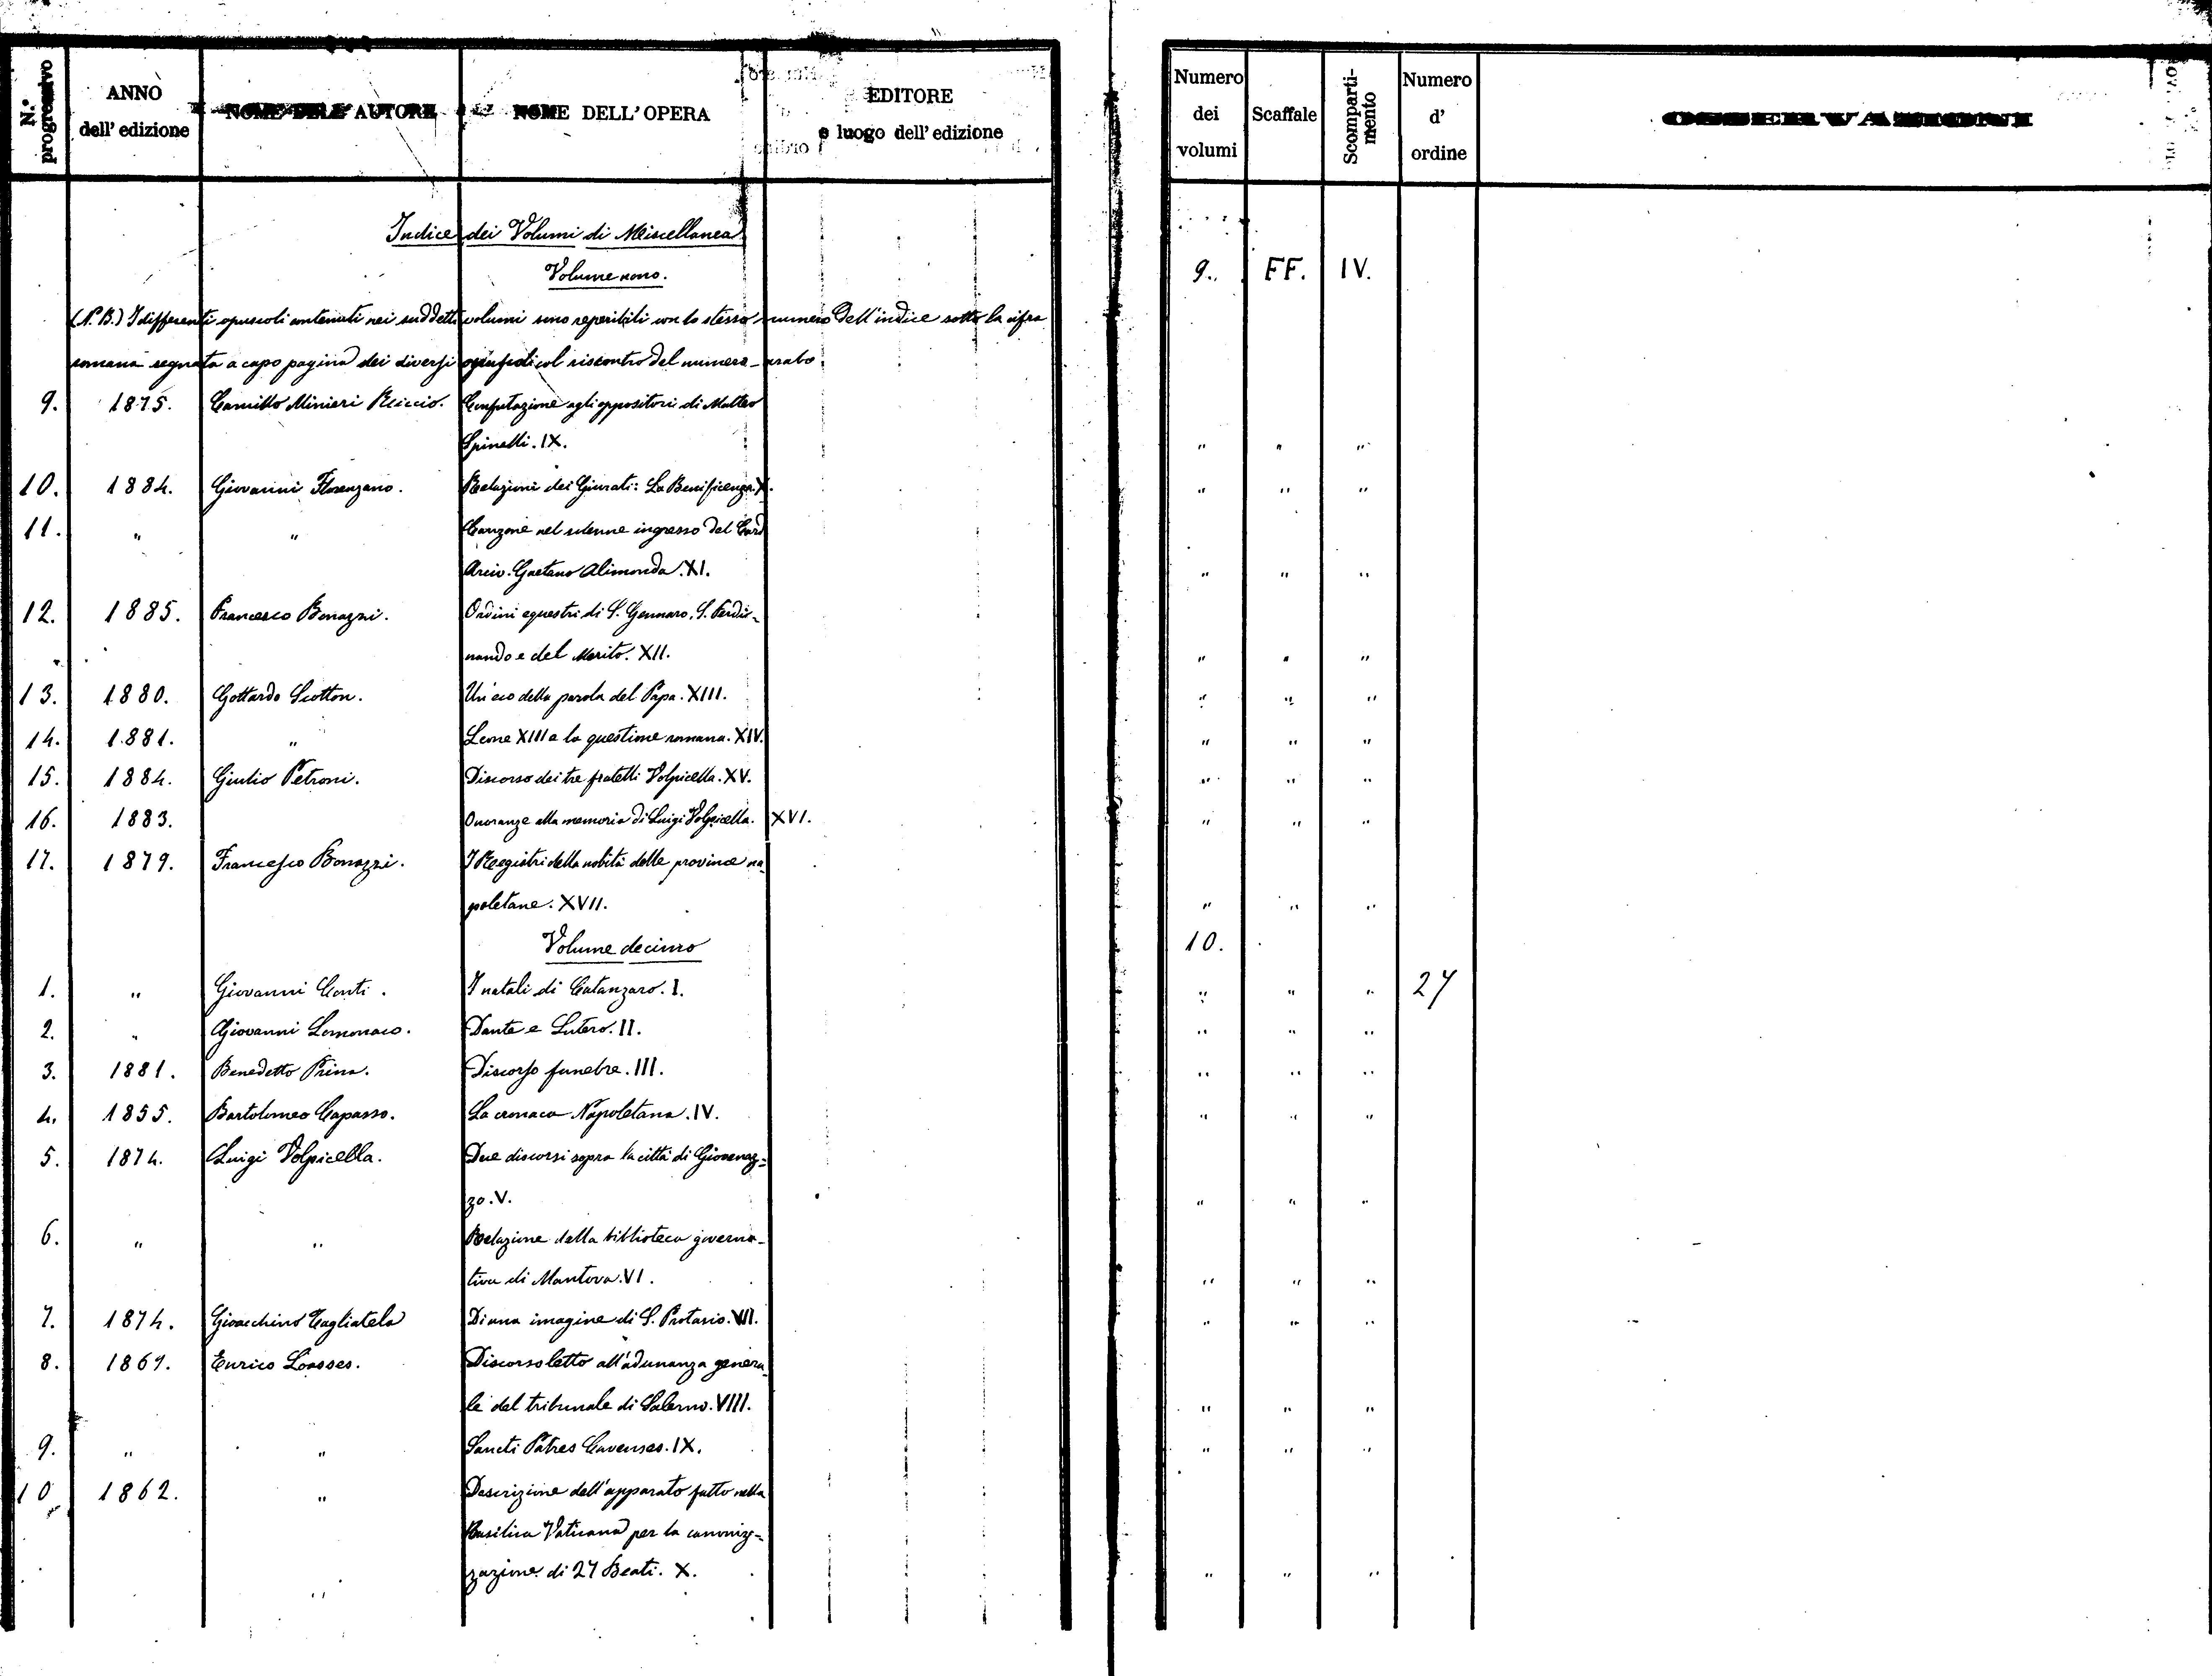 N.° progressivo | ANNO dell' edizione | NOME DELL' AUTORE | NOME DELL' OPERA | EDITORE e luogo dell' edizione | Numero dei volumi | Scaffale | Scomparti-mento | Numero d' ordine | OSSERVAZIONI
Indice dei Volumi di Miscellanea
Volume nono. 9. FF. IV.
(N.B.) I differenti opuscoli contenuti nei suddetti volumi sono reperibili con lo stesso numero dell'indice sotto la cifra
romana segnata a capo pagina dei diversi opuscoli col riscontro del numero arabo.
9. 1875. Camillo Minieri Riccio. Confutazione agli oppositori di Matteo
Spinelli. IX. " " "
10. 1884. Giovanni Florenzano. Relazione dei Giurati: La Beneficenza. X. " " "
11. " " Canzone nel solenne ingresso del Card
Arciv. Gaetano Alimonda. XI. " " "
12. 1885. Francesco Bonazzi. Ordini equestri di S. Gennaro, S. Ferdi-
nando e del Merito. XII. " " "
13. 1880. Gottardo Scotton. Un'eco della parola del Papa. XIII. " " "
14. 1881. " Leone XIII e la questione romana. XIV. " " "
15. 1884. Giulio Petroni. Discorso dei tre fratelli Volpicella. XV. " " "
16. 1883. Onoranze alla memoria di Luigi Volpicella. XVI. " " "
17. 1879. Francesco Bonazzi. I Registri della nobiltà delle province na-
poletane. XVII. " " "
Volume decimo 10.
1. " Giovanni Conti. I natali di Catanzaro. I. " " " 27
2. " Giovanni Lomonaco. Dante e Lutero. II. " " "
3. 1881. Benedetto Prina. Discorso funebre. III. " " "
4. 1855. Bartolomeo Capasso. La cronaca Napoletana. IV. " " "
5. 1874. Luigi Volpicella. Due discorsi sopra la città di Giovenaz=
zo. V. " " "
6. " " Relazione della biblioteca governa-
tiva di Mantova. VI. " " "
7. 1874. Gioacchino Tagliatela Di una imagine di S. Protasio. VII. " " "
8. 1869. Enrico Loasses. Discorso letto all'adunanza genera-
le del tribunale di Salerno. VIII. " " "
9. " " Sancti Patres Cavenses. IX. " " "
10 1862. " Descrizione dell'apparato fatto nella
Basilica Vaticana per la canoniz=
zazione di 27 Beati. X. " " "
"